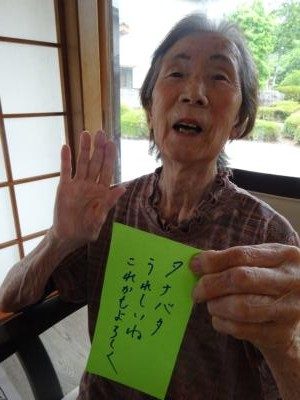 タナバタ
うれしいね
これからもよろしく